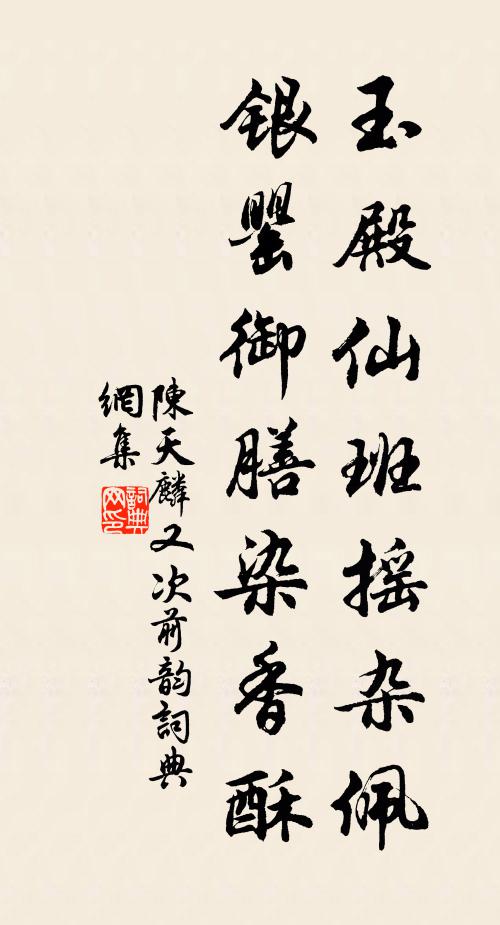 玉殿仙班摇杂佩
銀罌御膳染香酥
陳天麟又次前韵詞典
網集
詞典
网印